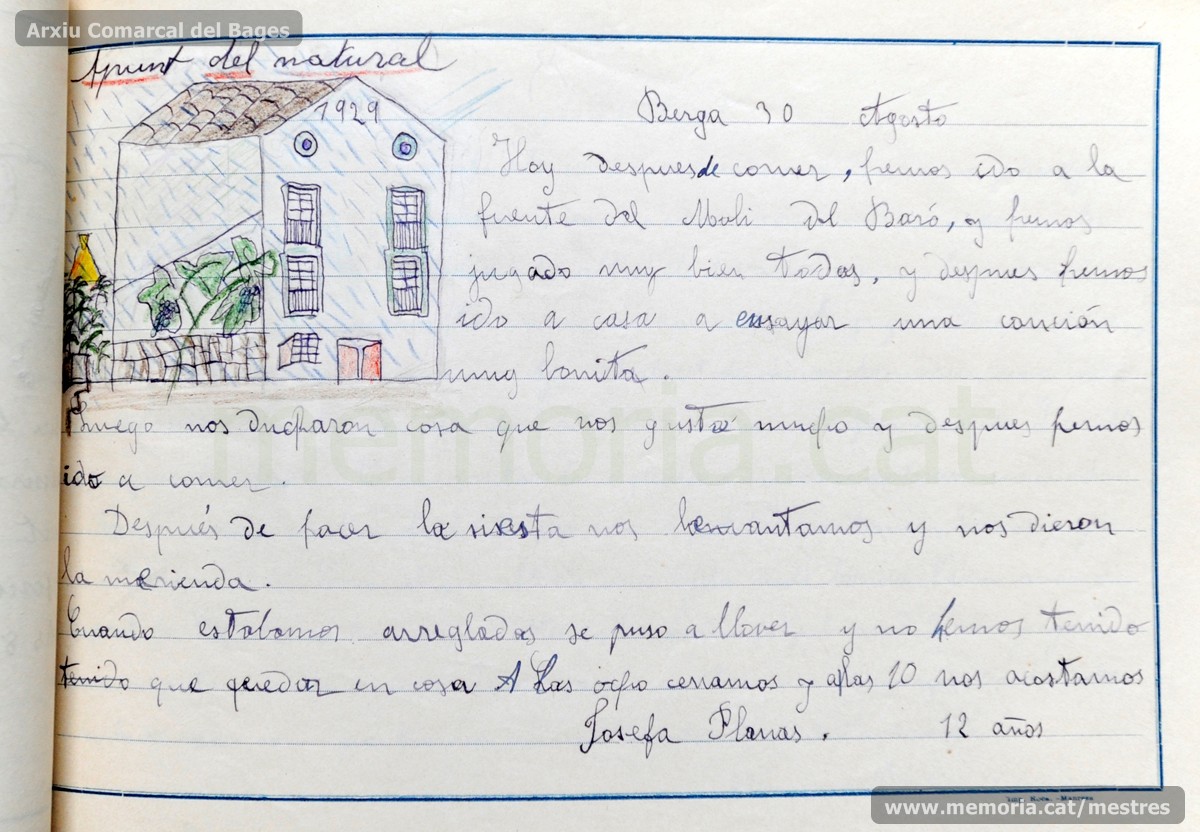 Arxiu Comarcal del Bages
Apunt del natural
1929
Berga 30 Agosto
Hoy despues de comer, hemos ido a la
fuente del Moli del Baró, y hemos
jugado muy bien todas, y despues hemos
ido a casa a ensayar una canción
muy bonita.
Luego nos ducharon cosa que nos gustó mucho y despues hemos
ido a comer.
Después de hacer la siesta nos levantamos y nos dieron
la merienda.
Cuando estabamos arregladas se puso a llover y no hemos tenido
tenido que quedar en casa A las ocho cenamos y a las 10 nos acostamos
Josefa Planas. 12 años
memoria.cat
www.memoria.cat/mestres